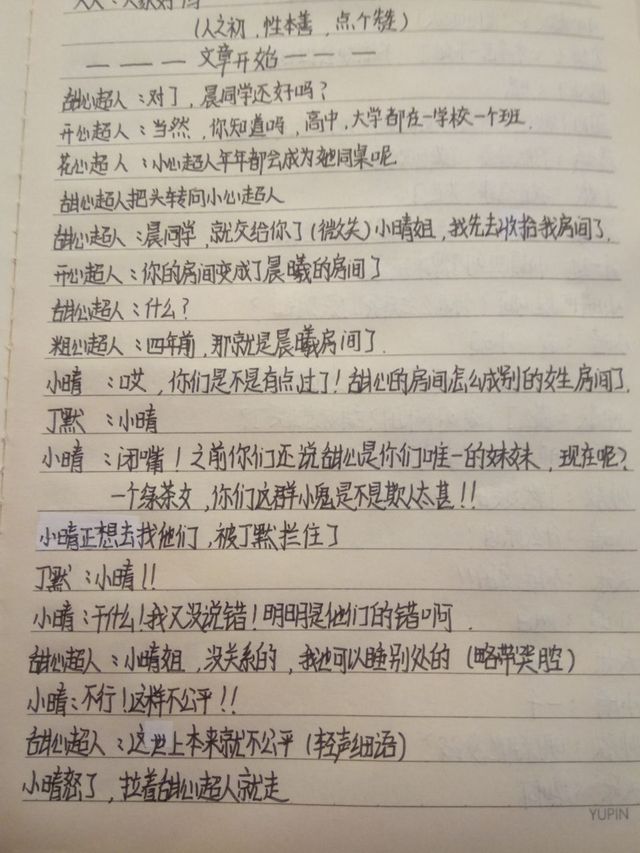 (人之初,性本善,点个赞)
— — — 文章开始 — — —
甜心超人:对了,晨同学还好吗?
开心超人:当然,你知道吗,高中,大学都在一学校一个班.
花心超人:小心超人年年都会成为她同桌呢
甜心超人把头转向小心超人
甜心超人:晨同学,就交给你了(微笑)小晴姐,我先去收拾我房间了.
开心超人:你的房间变成了晨曦的房间了
甜心超人:什么?
粗心超人:四年前,那就是晨曦房间了.
小晴:哎,你们是不是有点过了!甜心的房间怎么成别的女生房间了.
丁默:小晴
小晴:闭嘴!之前你们还说甜心是你们唯一的妹妹,现在呢?
一个绿茶女,你们这群小鬼是不是欺人太甚!!
小晴正想去找他们,被丁默拦住了
丁默:小晴!!
小晴:干什么!我又没说错!明明是他们的错啊.
甜心超人:小晴姐,没关系的,我也可以睡别处的(略带哭腔)
小晴:不行!这样不公平!!
甜心超人:这世上本来就不公平(轻声细语)
小晴怒了,拉着甜心超人就走
YUPIN